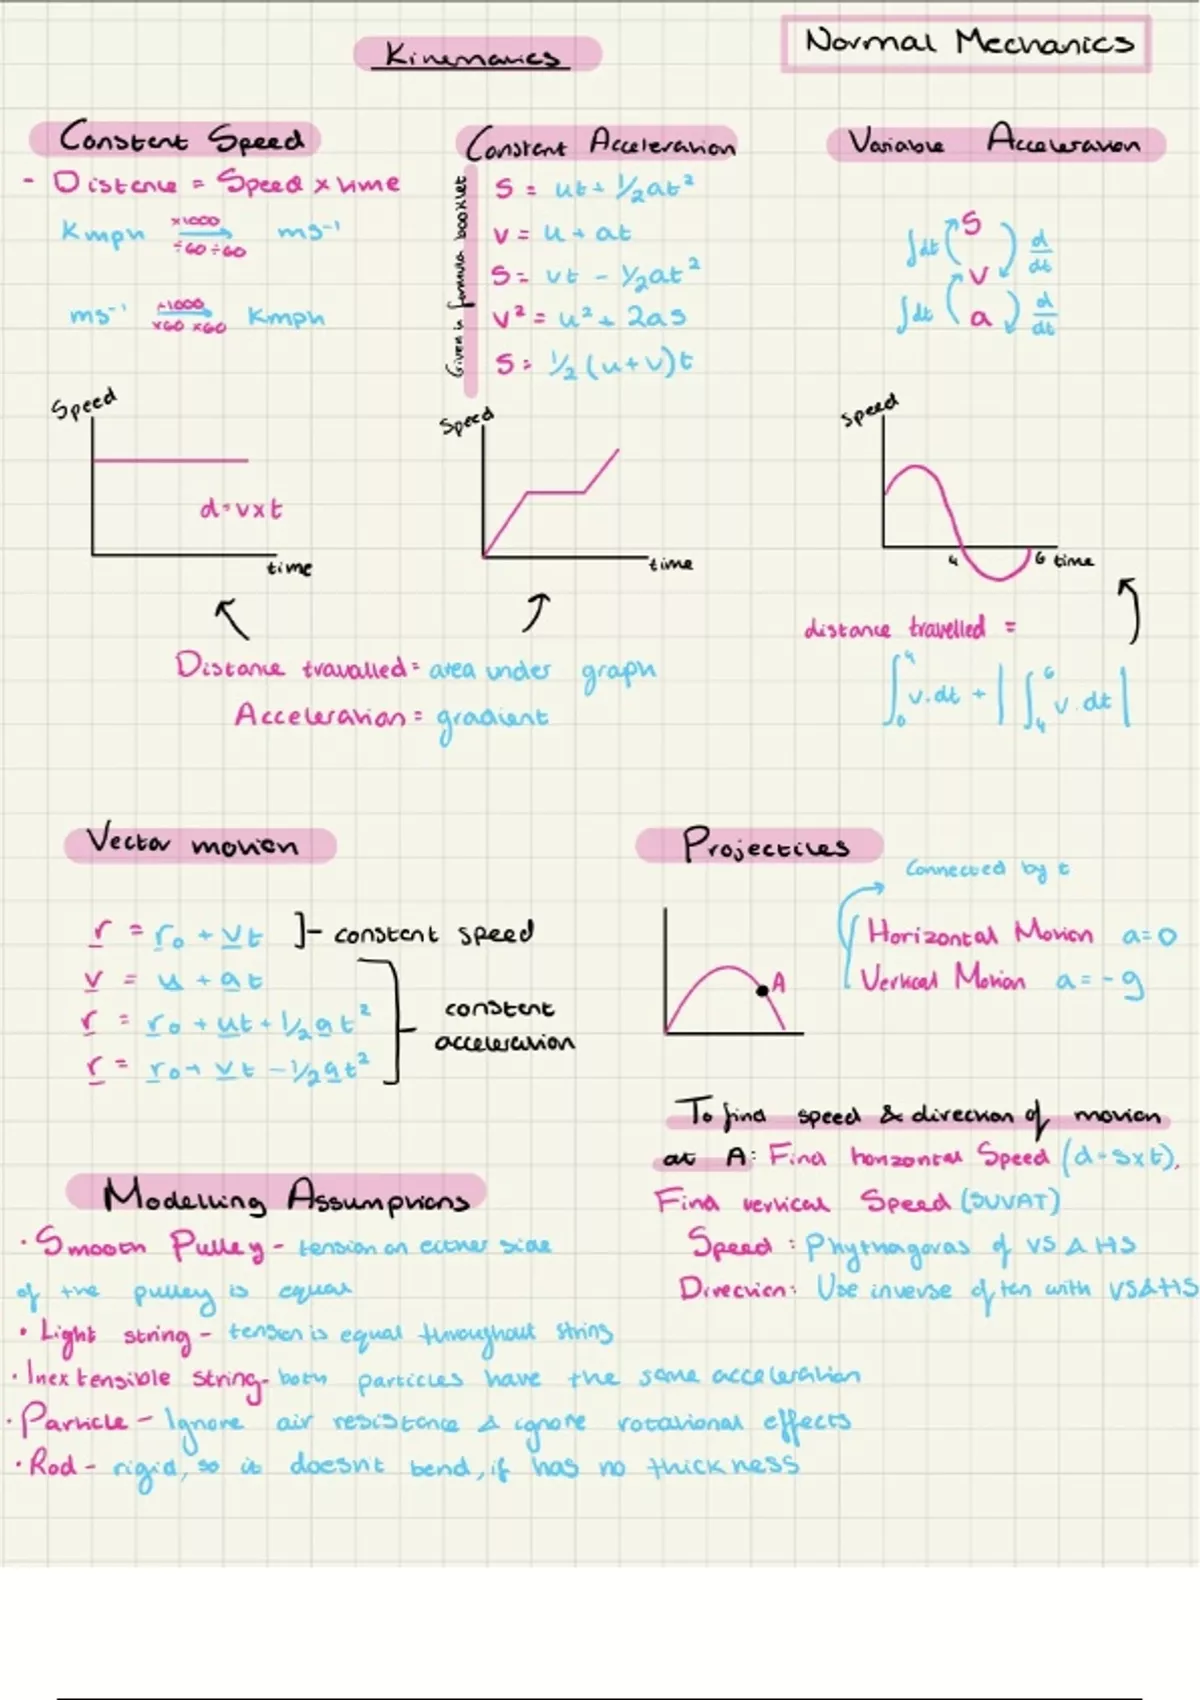 Normal Mechanics
Kinematics
Constant Speed
- Distance = Speed x time
Kmph ×1000 ÷60 ÷60 ms⁻¹
ms⁻¹ ÷1000 ×60 ×60 Kmph
Speed
d=vxt
time
Constant Acceleration
Given in formula booklet
S = ut + 1/2at²
v = u + at
S = vt - 1/2at²
v² = u² + 2as
S = 1/2(u+v)t
Speed
time
Distance travalled = area under graph
Acceleration = gradient
Variable Acceleration
∫dt S d/dt
v
∫dt a d/dt
speed
4 6 time
distance travelled =
∫₀⁴ v.dt + |∫₄⁶ v.dt|
Vector motion
r = r₀ + vt ]- constant speed
v = u + at
r = r₀ + ut + 1/2at²
r = r₀ + vt - 1/2at²
constant
acceleration
Projectiles
Connected by t
Horizontal Motion a=0
Vertical Motion a=-g
A
To find speed & direction of motion
at A: Find horizontal Speed (d=sxt),
Find vertical Speed (SUVAT)
Speed: Phythagoras of VS & HS
Direction: Use inverse of tan with VS&HS
Modelling Assumptions
· Smooth Pulley - tension on either side
of the pulley is equal
· Light string - tension is equal throughout string
· Inextensible string - both particles have the same acceleration
· Particle - Ignore air resistance & ignore rotational effects
· Rod - rigid, so it doesnt bend, it has no thickness